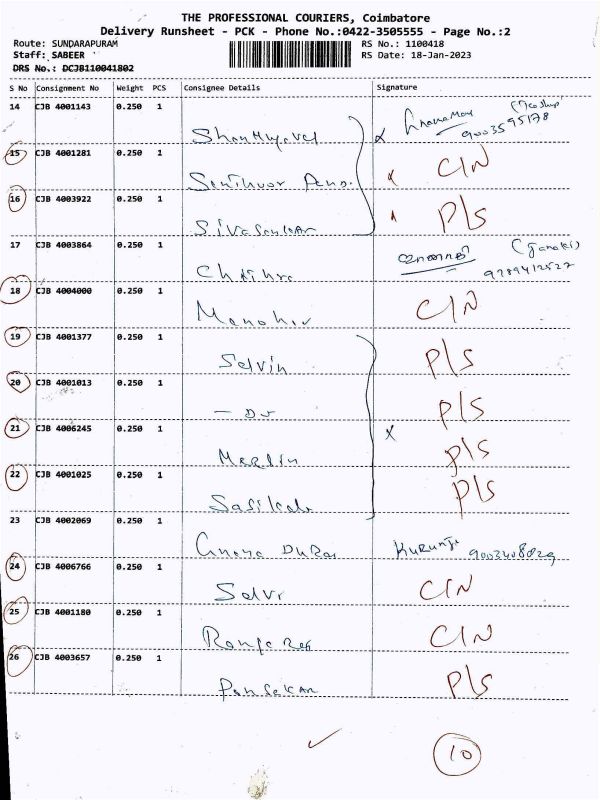 THE PROFESSIONAL COURIERS, Coimbatore
Delivery Runsheet - PCK - Phone No.:0422-3505555 - Page No.:2
Route: SUNDARAPURAM RS No.: 1100418
Staff: SABEER RS Date: 18-Jan-2023
DRS No.: DCJB110041802
S No Consignment No Weight PCS Consignee Details Signature
14 CJB 4001143 0.250 1
9003595178
15 CJB 4001281 0.250 1 C/N
16 CJB 4003922 0.250 1 P/S
17 CJB 4003864 0.250 1
Chithra 9789412527
18 CJB 4004000 0.250 1 C/N
Manohar
19 CJB 4001377 0.250 1 P/S
Selvin
20 CJB 4001013 0.250 1 P/S
- Do
21 CJB 4006245 0.250 1 P/S
Merlin
22 CJB 4001025 0.250 1 P/S
Sasikala
23 CJB 4002069 0.250 1
Gnana Durai Kurunji 9003408029
24 CJB 4006766 0.250 1 C/N
Selvi
25 CJB 4001180 0.250 1 C/N
26 CJB 4003657 0.250 1 P/S
10